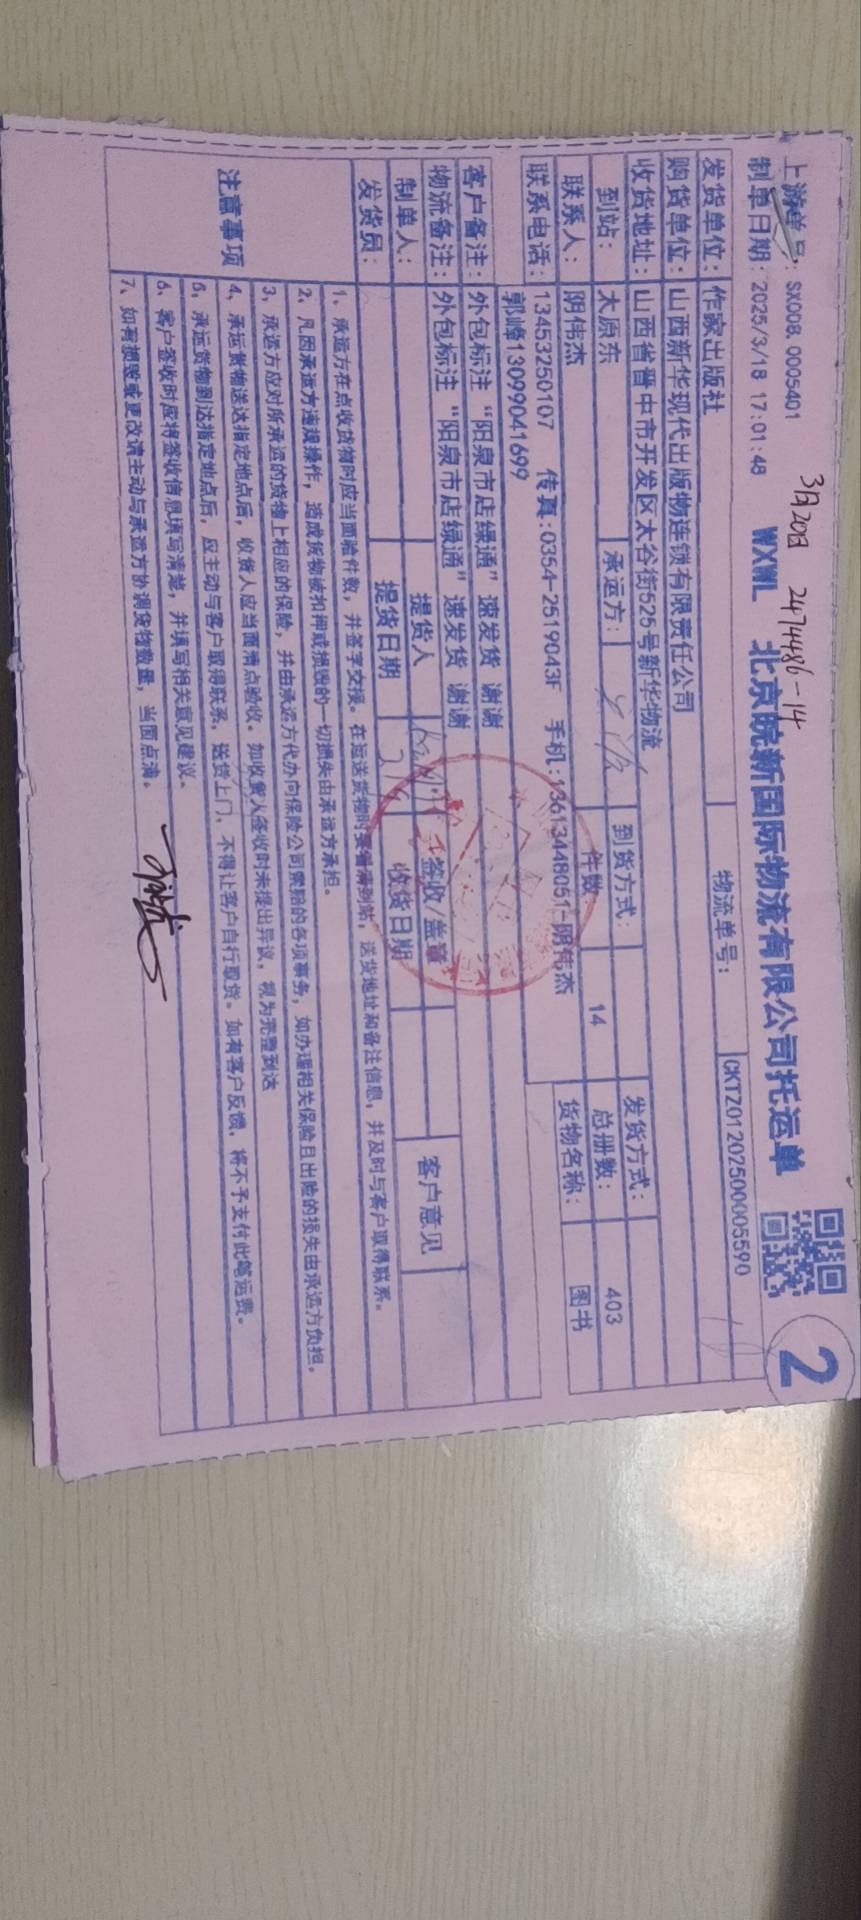 3月20日 2474486-14
上游单号: SX008.0005401
制单日期: 2025/3/18 17:01:48
WXWL 北京皖新国际物流有限公司托运单
2
物流单号: CKTZ01202500005590
发货单位: 作家出版社
购货单位: 山西新华现代出版物连锁有限责任公司
收货地址: 山西省晋中市开发区太谷街525号新华物流
到货方式: 发货方式:
到站: 太原东 承运方: 件数: 14 总册数: 403
联系人: 阴伟杰 货物名称: 图书
联系电话: 13453250107 传真:0354-2519043F 手机:13613448051-阴伟杰
郭峰13099041699
客户备注: 外包标注“阳泉市店绿通”速发货 谢谢
物流备注: 外包标注“阳泉市店绿通”速发货 谢谢
制单人: 提货人 签收/盖章 客户意见
发货员: 提货日期 收货日期
注意事项
1、承运方在点收货物时应当面验件数，并签字交接。在运送货物时要看清到站，送货地址和备注信息，并及时与客户取得联系。
2、凡因承运方违规操作，造成货物被扣押或损毁的一切损失由承运方承担。
3、承运方应对所承运的货物上相应的保险，并由承运方代办向保险公司索赔的各项事务，如办理相关保险且出险的损失由承运方负担。
4、承运货物送达指定地点后，收货人应当面清点验收。如收货人签收时未提出异议，视为完整到达
5、承运货物到达指定地点后，应主动与客户取得联系，送货上门，不得让客户自行取货。如有客户反馈，将不予支付此笔运费。
6、客户签收时应将签收信息填写清楚，并填写相关意见建议。
7、如有损毁或更改请主动与承运方协调货物数量，当面点清。